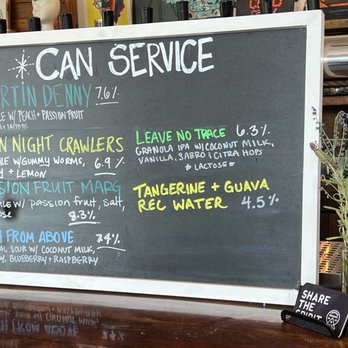 CAN SERVICE
RTIN DENNY 7.6%
LE W/ PEACH + PASSION FRUIT
+ LACTOSE
N NIGHT CRAWLERS
NE W/GUMMY WORMS, 6.9%
+ LEMON
SSION FRUIT MARG.
ALE W/ PASSION FRUIT, SALT,
OSE 8.3%
H FROM ABOVE 7.4%
AL SOUR W/ COCONUT MILK,
BLUEBERRY + RASPBERRY
LEAVE NO TRACE 6.3%
GRANOLA IPA W/ COCONUT MILK,
VANILLA, SABRO & CITRA HOPS
* LACTOSE *
TANGERINE + GUAVA
REC WATER 4.5%
SHARE
THE
SPIRIT